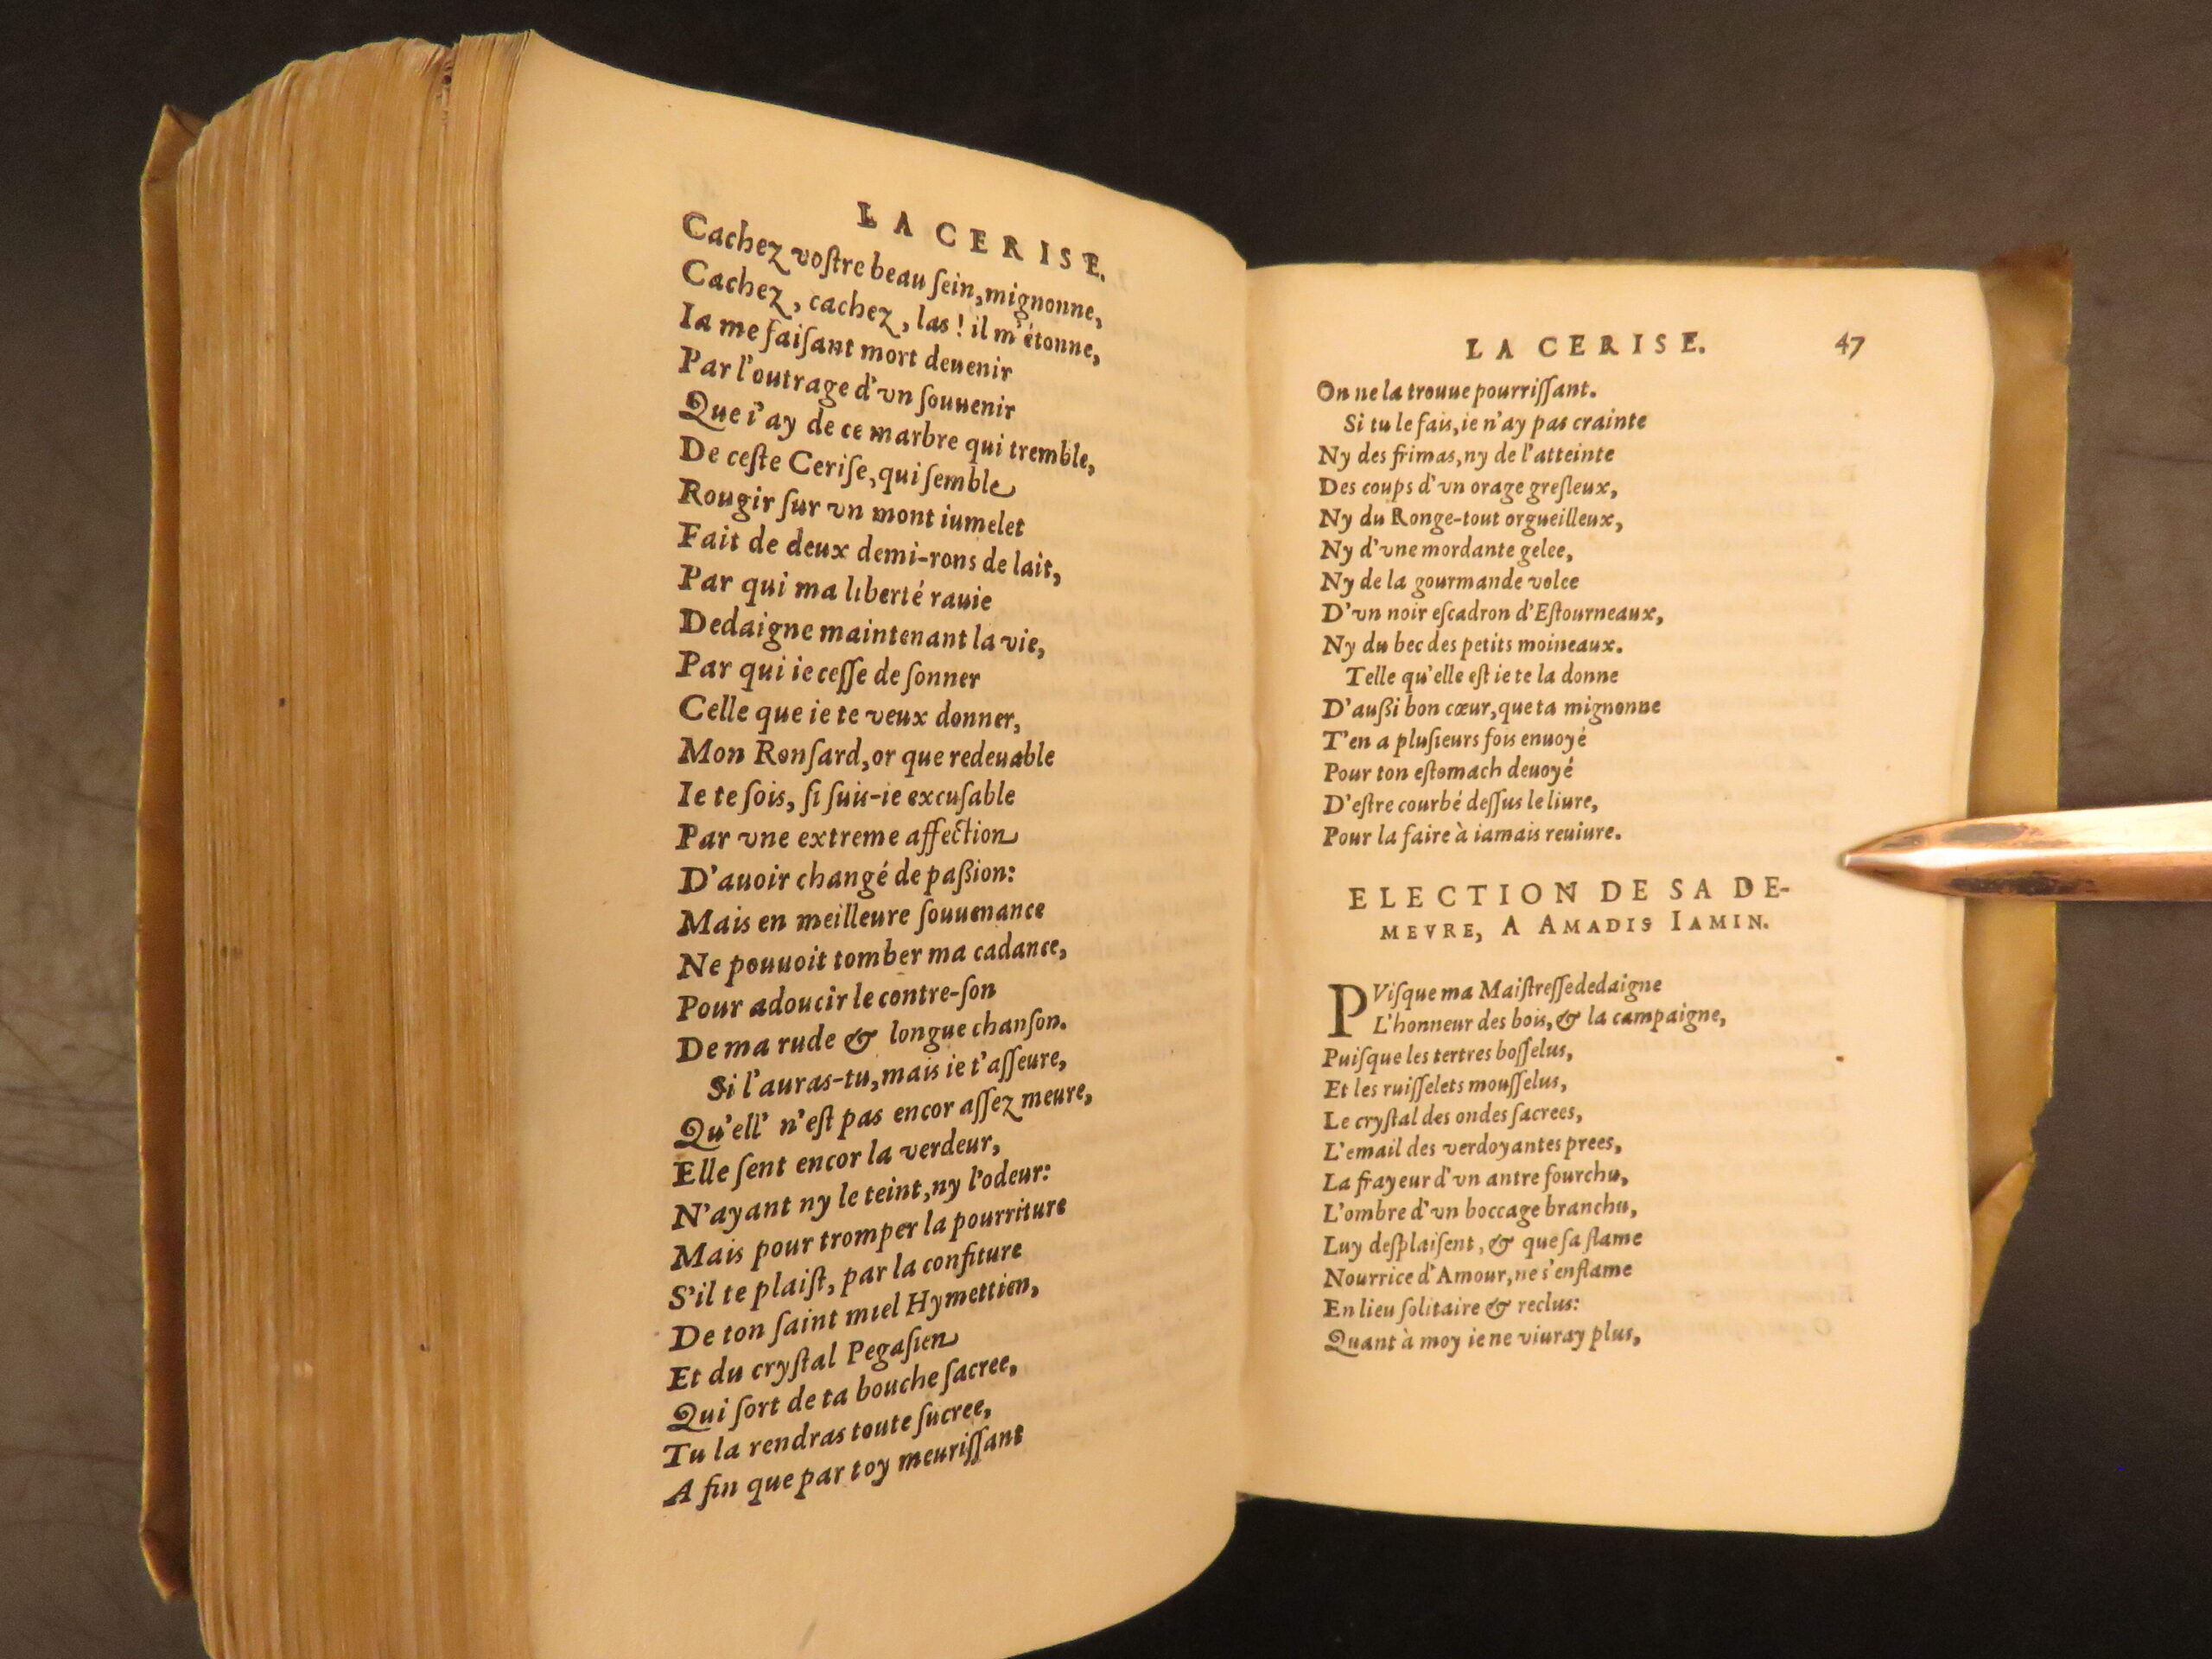 LA CERISE.
Cachez voſtre beau ſein, mignonne,
Cachez, cachez, las! il m'étonne,
Ia me faiſant mort deuenir
Par l'outrage d'vn ſouuenir
Que i'ay de ce marbre qui tremble,
De ceſte Ceriſe, qui ſemble
Rougir ſur vn mont iumelet
Fait de deux demi-rons de lait,
Par qui ma liberté rauie
Dedaigne maintenant la vie,
Par qui ie ceſſe de ſonner
Celle que ie te veux donner,
Mon Ronſard, or que redeuable
Ie te ſois, ſi ſuis-ie excuſable
Par vne extreme affection
D'auoir changé de paßion:
Mais en meilleure ſouuenance
Ne pouuoit tomber ma cadance,
Pour adoucir le contre-ſon
De ma rude & longue chanſon.
Si l'auras-tu, mais ie t'aſſeure,
Qu'ell' n'eſt pas encor aſſez meure,
Elle ſent encor la verdeur,
N'ayant ny le teint, ny l'odeur:
Mais pour tromper la pourriture
S'il te plaiſt, par la confiture
De ton ſaint miel Hymettien,
Et du cryſtal Pegaſien
Qui ſort de ta bouche ſacree,
Tu la rendras toute ſucree,
A fin que par toy meuriſſant
LA CERISE. 47
On ne la trouue pourriſſant.
Si tu le fais, ie n'ay pas crainte
Ny des frimas, ny de l'atteinte
Des coups d'vn orage greſleux,
Ny du Ronge-tout orgueilleux,
Ny d'vne mordante gelee,
Ny de la gourmande volee
D'vn noir eſcadron d'Eſtourneaux,
Ny du bec des petits moineaux.
Telle qu'elle eſt ie te la donne
D'außi bon cœur, que ta mignonne
T'en a pluſieurs fois enuoyé
Pour ton eſtomach deuoyé
D'eſtre courbé deſſus le liure,
Pour la faire à iamais reuiure.
ELECTION DE SA DE-
MEVRE, A AMADIS IAMIN.
PViſque ma Maiſtreſſe dedaigne
L'honneur des bois, & la campaigne,
Puiſque les tertres boſſelus,
Et les ruiſſelets mouſſelus,
Le cryſtal des ondes ſacrees,
L'email des verdoyantes prees,
La frayeur d'vn antre fourchu,
L'ombre d'vn boccage branchu,
Luy deſplaiſent, & que ſa flame
Nourrice d'Amour, ne s'enflame
En lieu ſolitaire & reclus:
Quant à moy ie ne viuray plus,